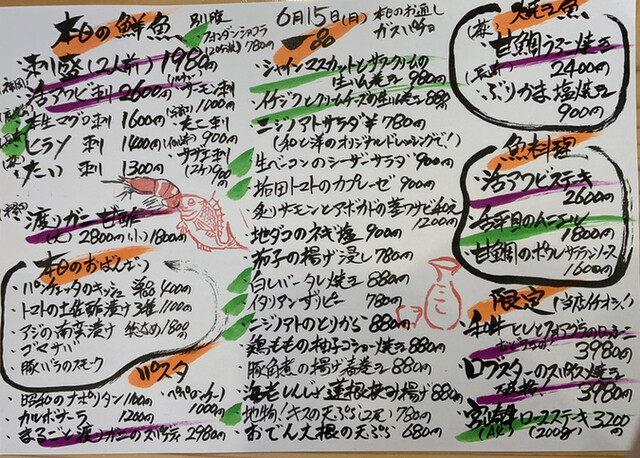 本日の鮮魚
刺盛(2人前) 1980円
活アワビ刺 2600円
本生マグロ刺 1600円
ヒラメ刺 1400円
たい刺 1300円
サーモン刺 1000円
たこ刺 900円
サザエ刺 900円
渡りガニ甘酢
(大) 2800円 (小) 1800円
本日のおばんざい
・パンチェッタのキッシュ 単品 400円
・トマトの土佐酢漬け 3種 1100円
・アジの南蛮漬け 総盛め 1800円
・ゴマサバ
・豚バラのスモーク
パスタ
・昭和のナポリタン 1100円
・カルボナーラ 1200円
・まるごと渡りガニのスパゲティ 2980円
フォンダンショコラ
780円
6月15日(月)
本日のお通し
ガスパチョ
一品
・シャインマスカットとサワークリームの
生ハム巻き 980円
・イチジクとクリームチーズの生ハム巻き 880円
・ニジノアトサラダ ¥780円
(和と洋のオリジナルドレッシングで!)
・生ベーコンのシーザーサラダ 900円
・垢田トマトのカプレーゼ 900円
・炙りサーモンとアボカドの
1200円
・地ダコのネギ塩 900円
・茄子の揚げ浸し 780円
・白レバータレ焼き 880円
・イタリアンずりピー 780円
・ニジノアトのとりから 880円
・鶏ももの柚子コショー焼き 880円
・豚角煮の揚げ春巻き 880円
・海老しんじょ蓮根挟み揚げ 880円
・地物!キスの天ぷら(2尾) 780円
・おでん大根の天ぷら 680円
焼き魚
・甘鯛うろこ焼き
2400円
・ぶりかま塩焼き
900円
魚料理
・活アワビステーキ
2600円
・舌平目のムニエル
1800円
・甘鯛のポワレサフランソース
1600円
限定 (当店イチオシ!)
・和牛ヒレとフォアグラのロッシーニ
3980円
・ロブスターのスパイス焼き
3980円
・宮崎牛ロースステーキ 3200円
(A4) (200g)